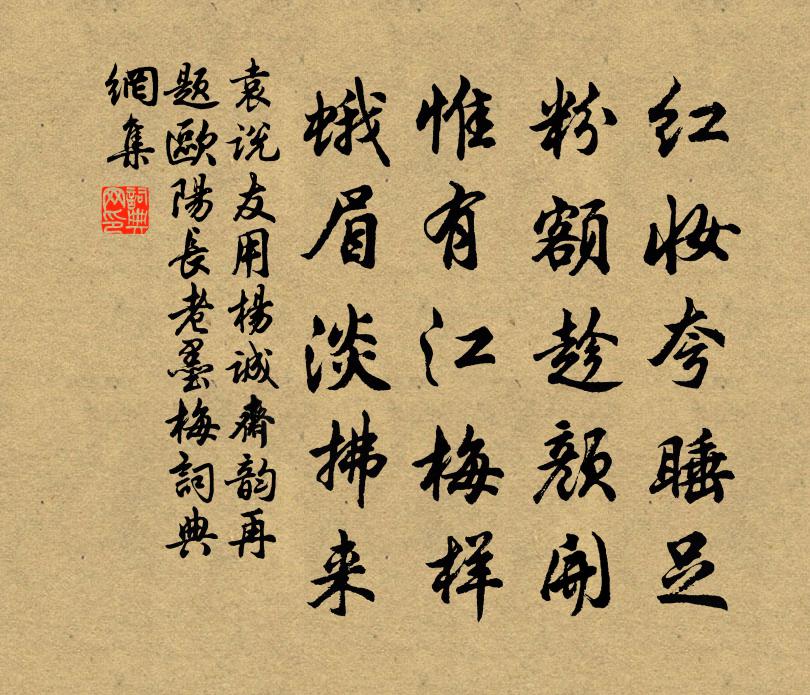 红妆夸睡足
粉额趁颜開
惟有江梅样
蛾眉淡拂来
袁说友用楊诚齋韵再
题歐陽長老墨梅詞典
網集
詞典
网印